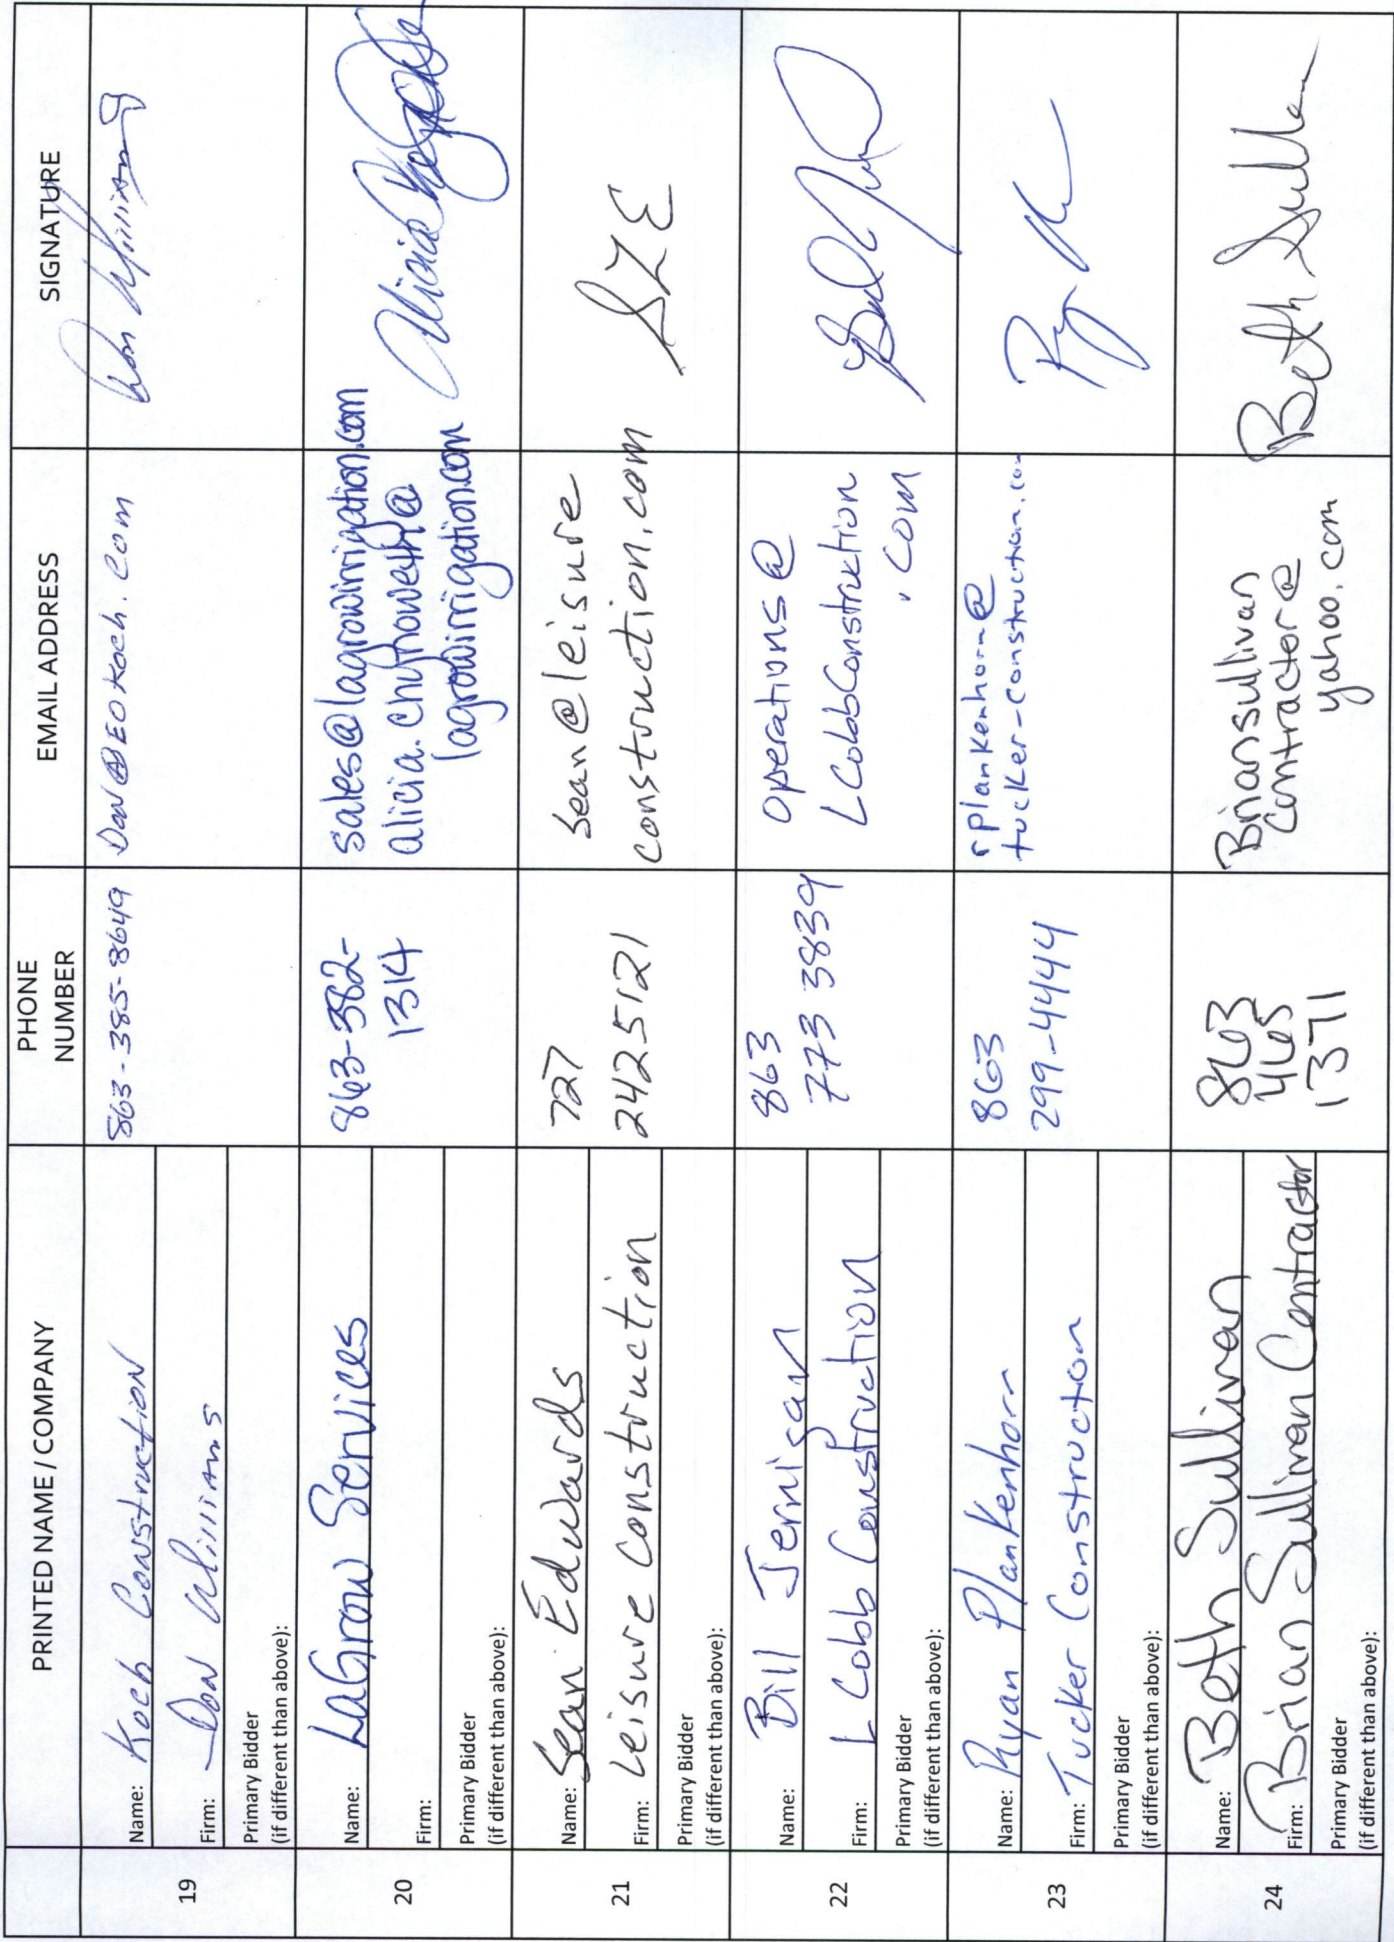 PRINTED NAME / COMPANY
PHONE
NUMBER
EMAIL ADDRESS
SIGNATURE
19
Name: Koch Construction
Firm: Don Williams
Primary Bidder
(if different than above):
863-385-8649
Don@EOKoch.com
Don Williams
20
Name: LaGrow Services
Firm:
Primary Bidder
(if different than above):
863-382-
1314
sales@lagrowirrigation.com
alicia.chynoweth@
lagrowirrigation.com
Alicia
21
Name: Sean Edwards
Firm: Leisure Construction
Primary Bidder
(if different than above):
727
242 5121
sean@leisure
construction.com
22
Name: Bill Jernigan
Firm: L Cobb Construction
Primary Bidder
(if different than above):
863
773 3839
Operations@
LCobbConstruction
.com
23
Name: Ryan Plankenhorn
Firm: Tucker Construction
Primary Bidder
(if different than above):
863
299-4444
rplankenhorn@
tucker-construction.com
24
Name: Beth Sullivan
Firm: Brian Sullivan Contractor
Primary Bidder
(if different than above):
863
465
1371
Briansullivan
Contractor@
yahoo.com
Beth Sullivan